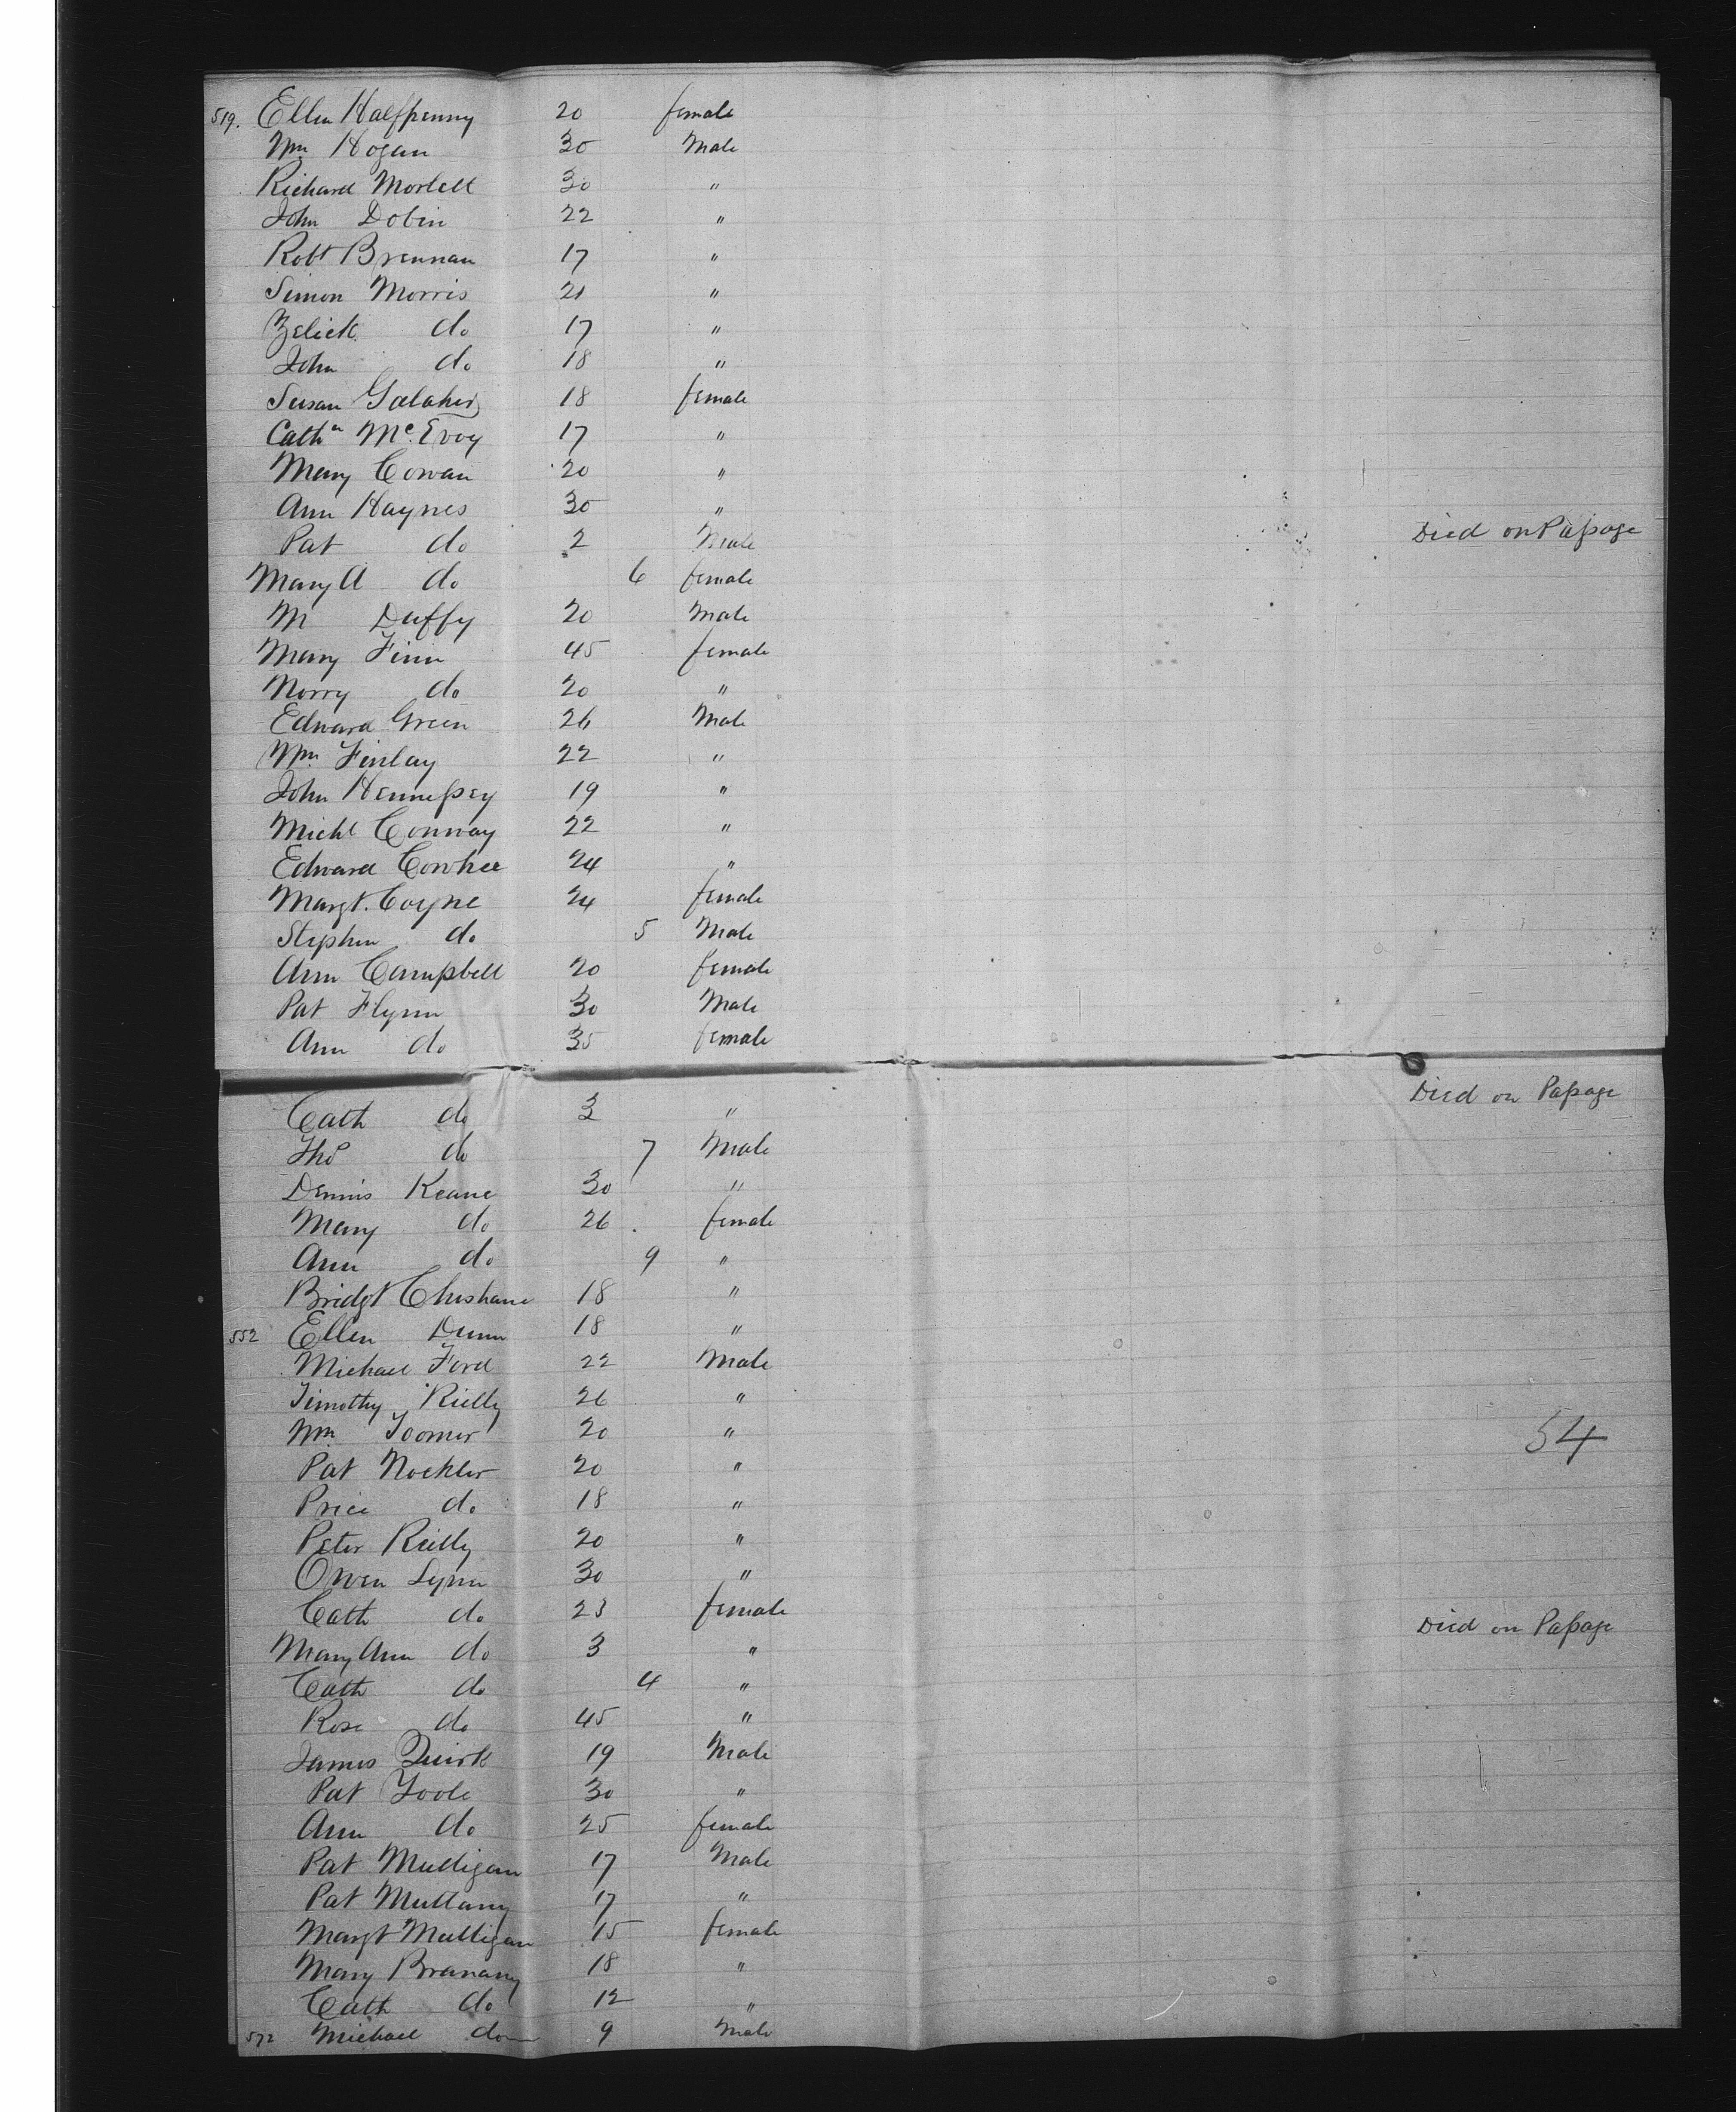 519. Ellen Halfpenny 20 female
Wm Hogan 30 Male
Richard Mortell 30 "
John Dobin 22 "
Robt Brennan 17 "
Simon Morris 21 "
Zelick do 17 "
John do 18 "
Susan Galaher 18 female
Cathn McEvoy 17 "
Mary Cowan 20 "
Ann Haynes 30 "
Pat do 2 Male Died on Passage
Mary A do 6 female
M Duffy 20 Male
Mary Finn 45 female
Norry do 20 "
Edward Green 26 Male
Wm Finlay 22 "
John Hennessey 19 "
Michl Conway 22 "
Edward Cowhee 24 "
Margt. Coyne 24 female
Stephen do 5 Male
Ann Campbell 20 female
Pat Flynn 30 Male
Ann do 35 female
Cath do 3 " Died on Passage
Thos do 7 Male
Dennis Keane 30 "
Mary do 26 female
Ann do 9 "
Bridgt 18 "
552 Ellen Dunn 18 "
Michael Ford 22 Male
Timothy Rielly 26 "
Wm Toomer 20 "
54
Pat Nockler 20 "
Price do 18 "
Peter Rielly 20 "
Owen Lynn 30 "
Cath do 23 female
Mary Ann do 3 " Died on Passage
Cath do 4 "
Rose do 45 "
James Quirk 19 Male
Pat Toole 30 "
Ann do 25 female
Pat Mulligan 17 Male
Pat Mullany 17 "
Margt Mulligan 15 female
Mary Branany 18 "
Cath do 12 "
572 Michael do 9 Male